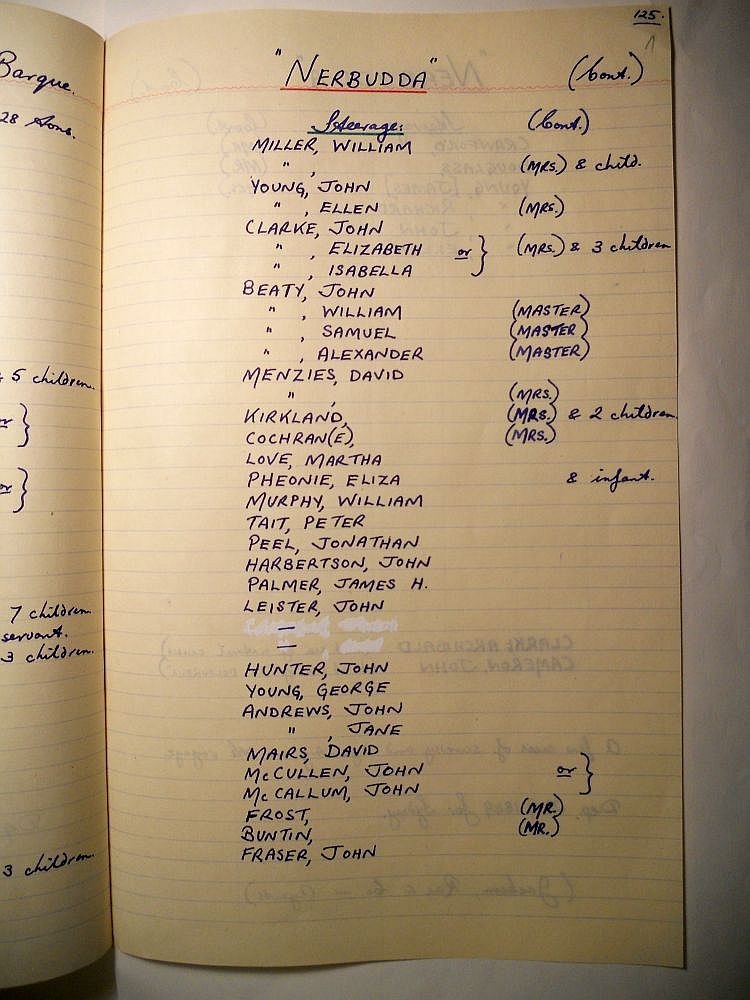 Barque.
28 Tons.
5 children.
or }
or }
7 children
servant.
3 children.
3 children.
125.
"NERBUDDA" (Cont.)
Steerage: (Cont.)
MILLER, WILLIAM
" , (MRS.) & child.
YOUNG, JOHN
" , ELLEN (MRS.)
CLARKE, JOHN
" , ELIZABETH or } (MRS.) & 3 children
" , ISABELLA
BEATY, JOHN
" , WILLIAM (MASTER)
" , SAMUEL (MASTER)
" , ALEXANDER (MASTER)
MENZIES, DAVID
" , (MRS.)
KIRKLAND, (MRS.) & 2 children
COCHRAN(E), (MRS.)
LOVE, MARTHA
PHEONIE, ELIZA & infant.
MURPHY, WILLIAM
TAIT, PETER
PEEL, JONATHAN
HARBERTSON, JOHN
PALMER, JAMES H.
LEISTER, JOHN
—
—
HUNTER, JOHN
YOUNG, GEORGE
ANDREWS, JOHN
" , JANE
MAIRS, DAVID
McCULLEN, JOHN or }
McCALLUM, JOHN
FROST, (MR.)
BUNTIN, (MR.)
FRASER, JOHN